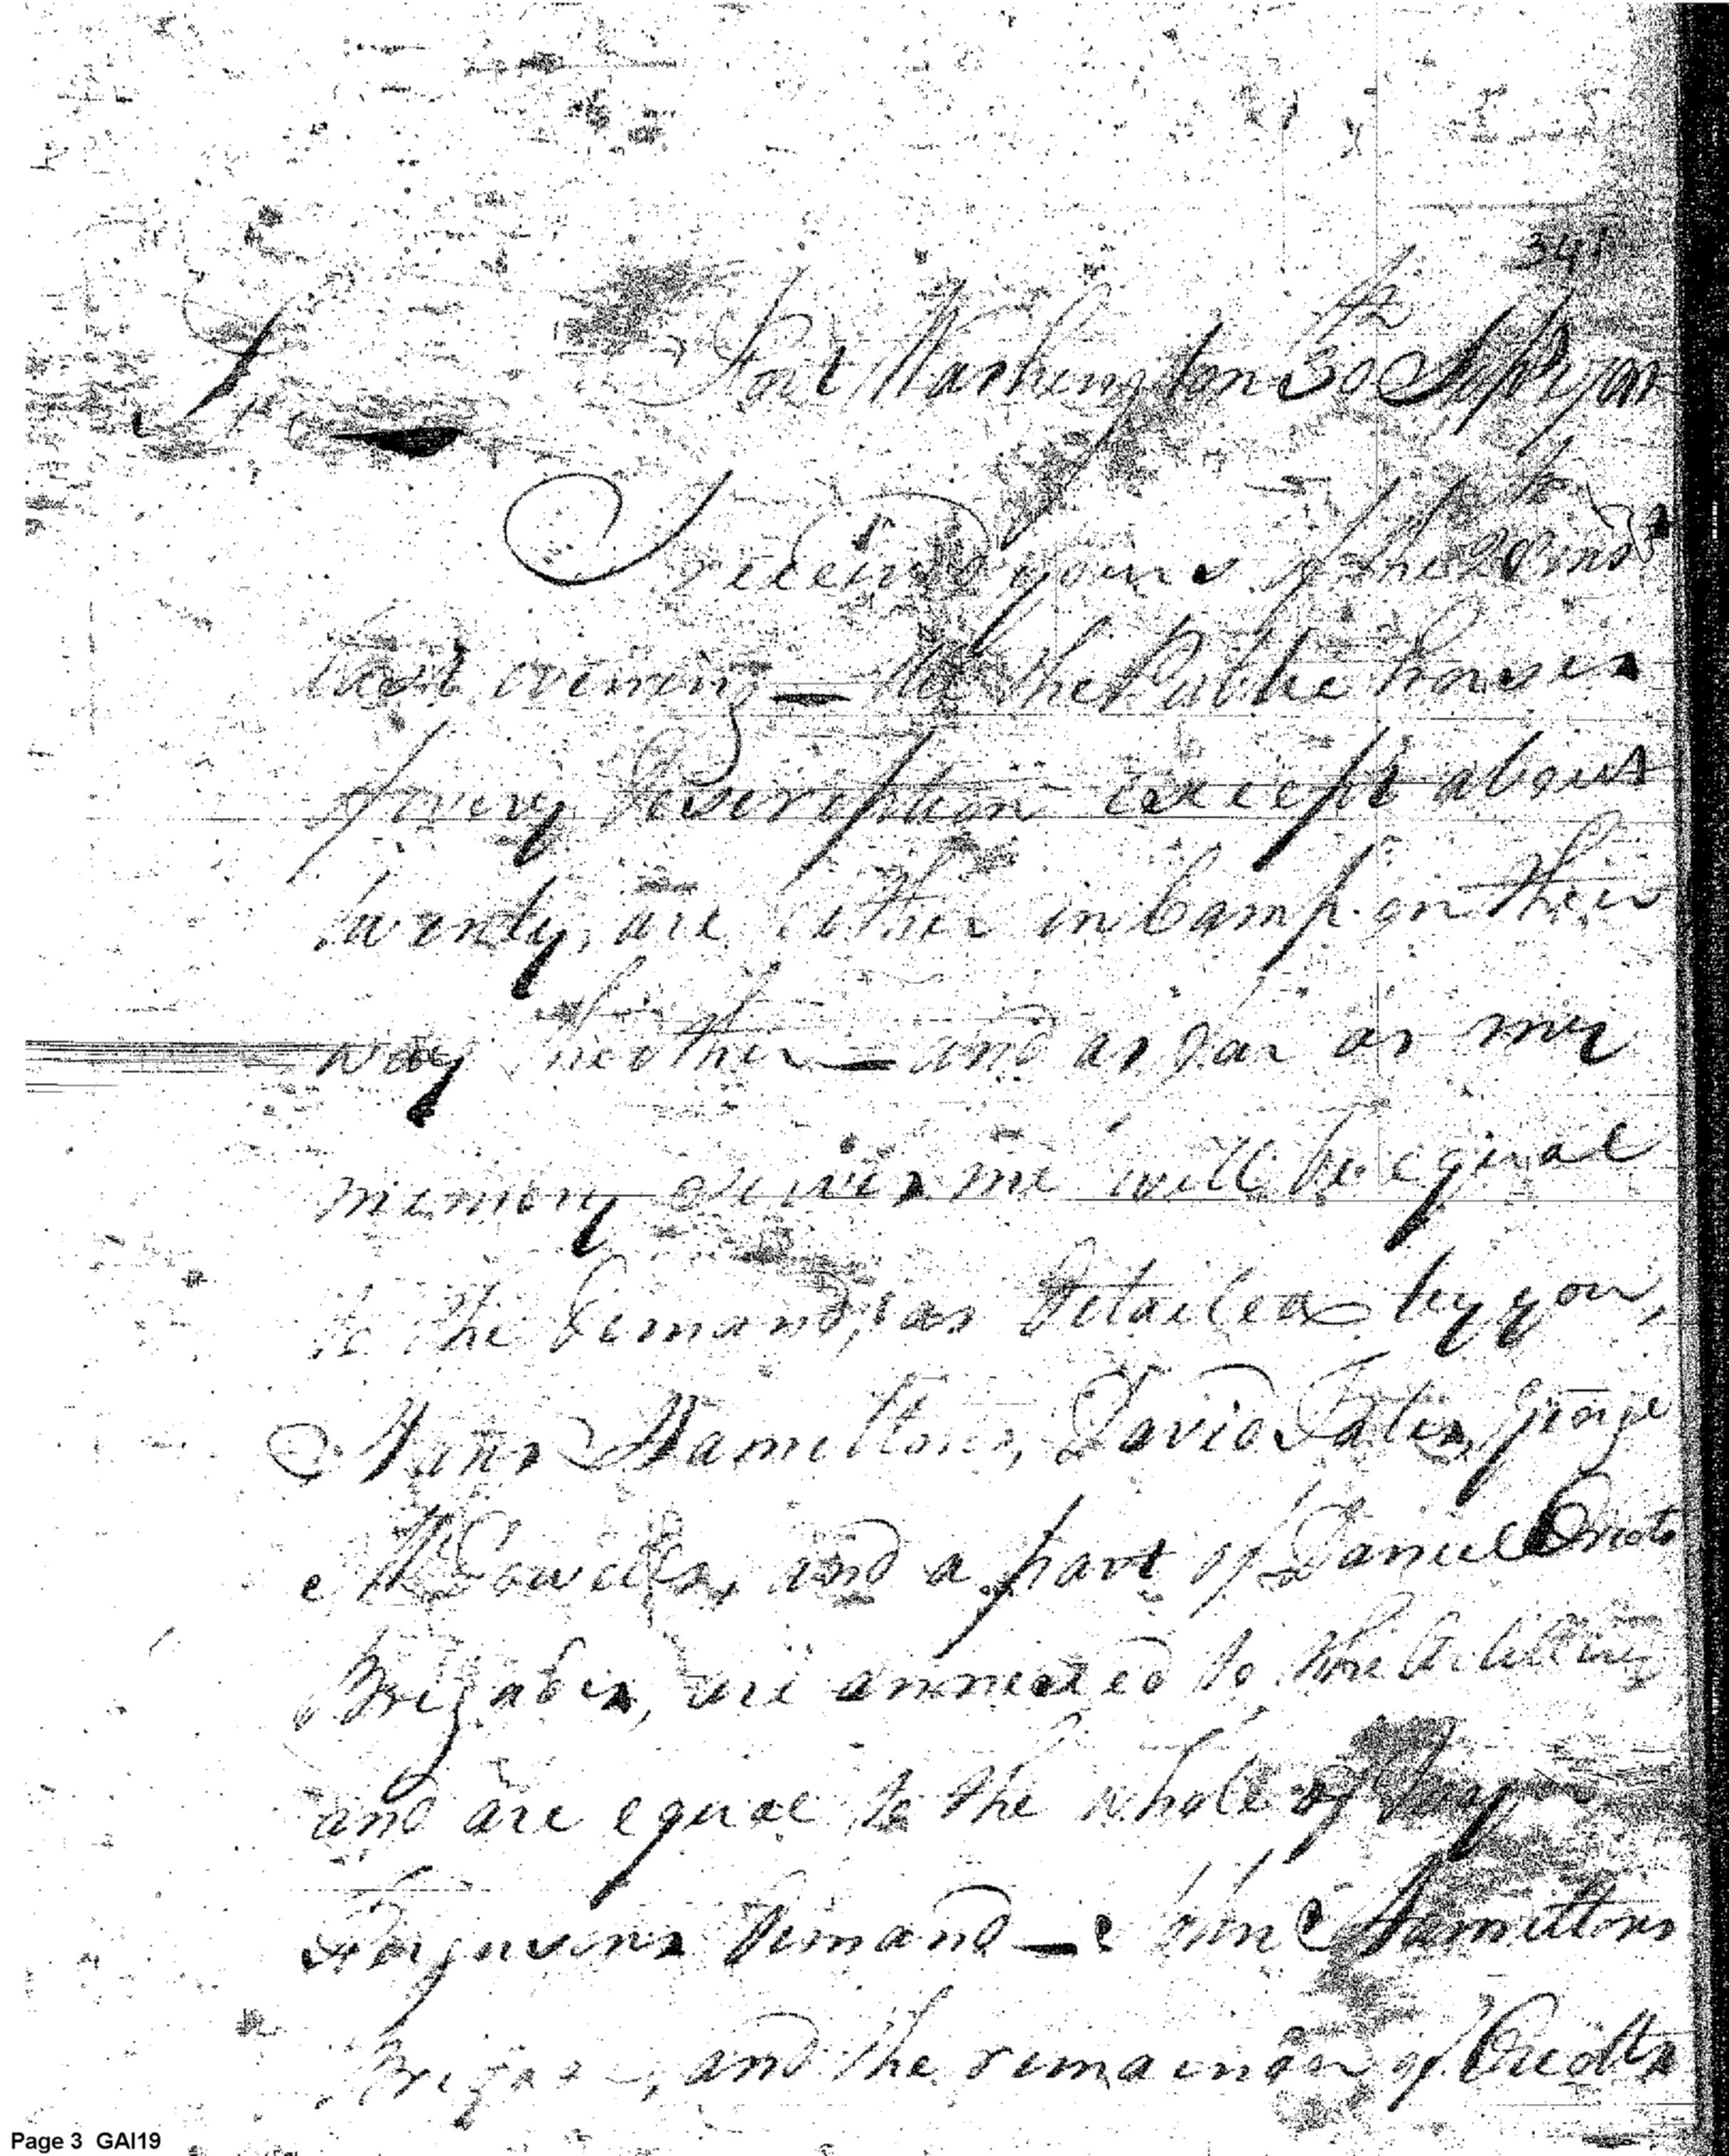 341
Fort Washington 30th Sepr 1791
Sir
I received yours of the 28th inst
last evening — All the Public horses
of every Description except about
twenty, are either in Camp or on their
way thither — and as far as my
memory serves me will be equal
to the demand, as Detailed by you,
Hans Hamiltons, David Fates, George
McDowells, and a part of Daniel
Brigades, are annexed to the Artillery
and are equal to the whole of
Fergusons Demand — John Hamiltons
Brigade, and the remainder of
Page 3 GAI19